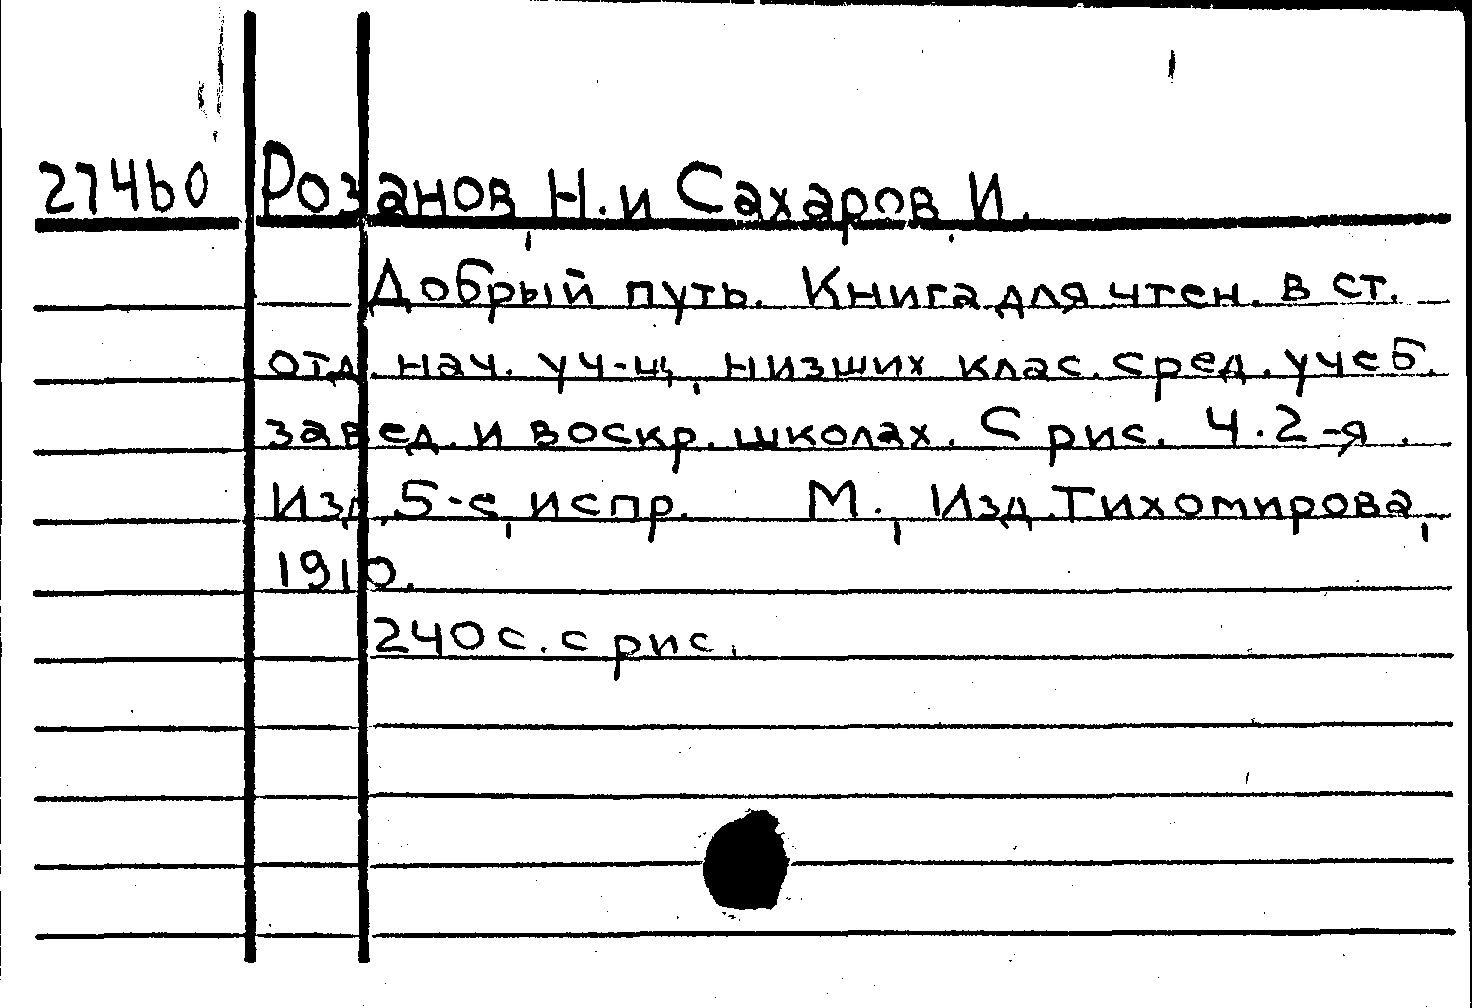 27460 Розанов, Н. и Сахаров, И.
Добрый путь. Книга для чтен. в ст.
отд. нач. уч-щ, низших клас. сред. учеб.
завед. и воскр. школах. С рис. Ч. 2-я.
Изд. 5-е, испр. М., Изд. Тихомирова,
1910.
240 с. с рис.